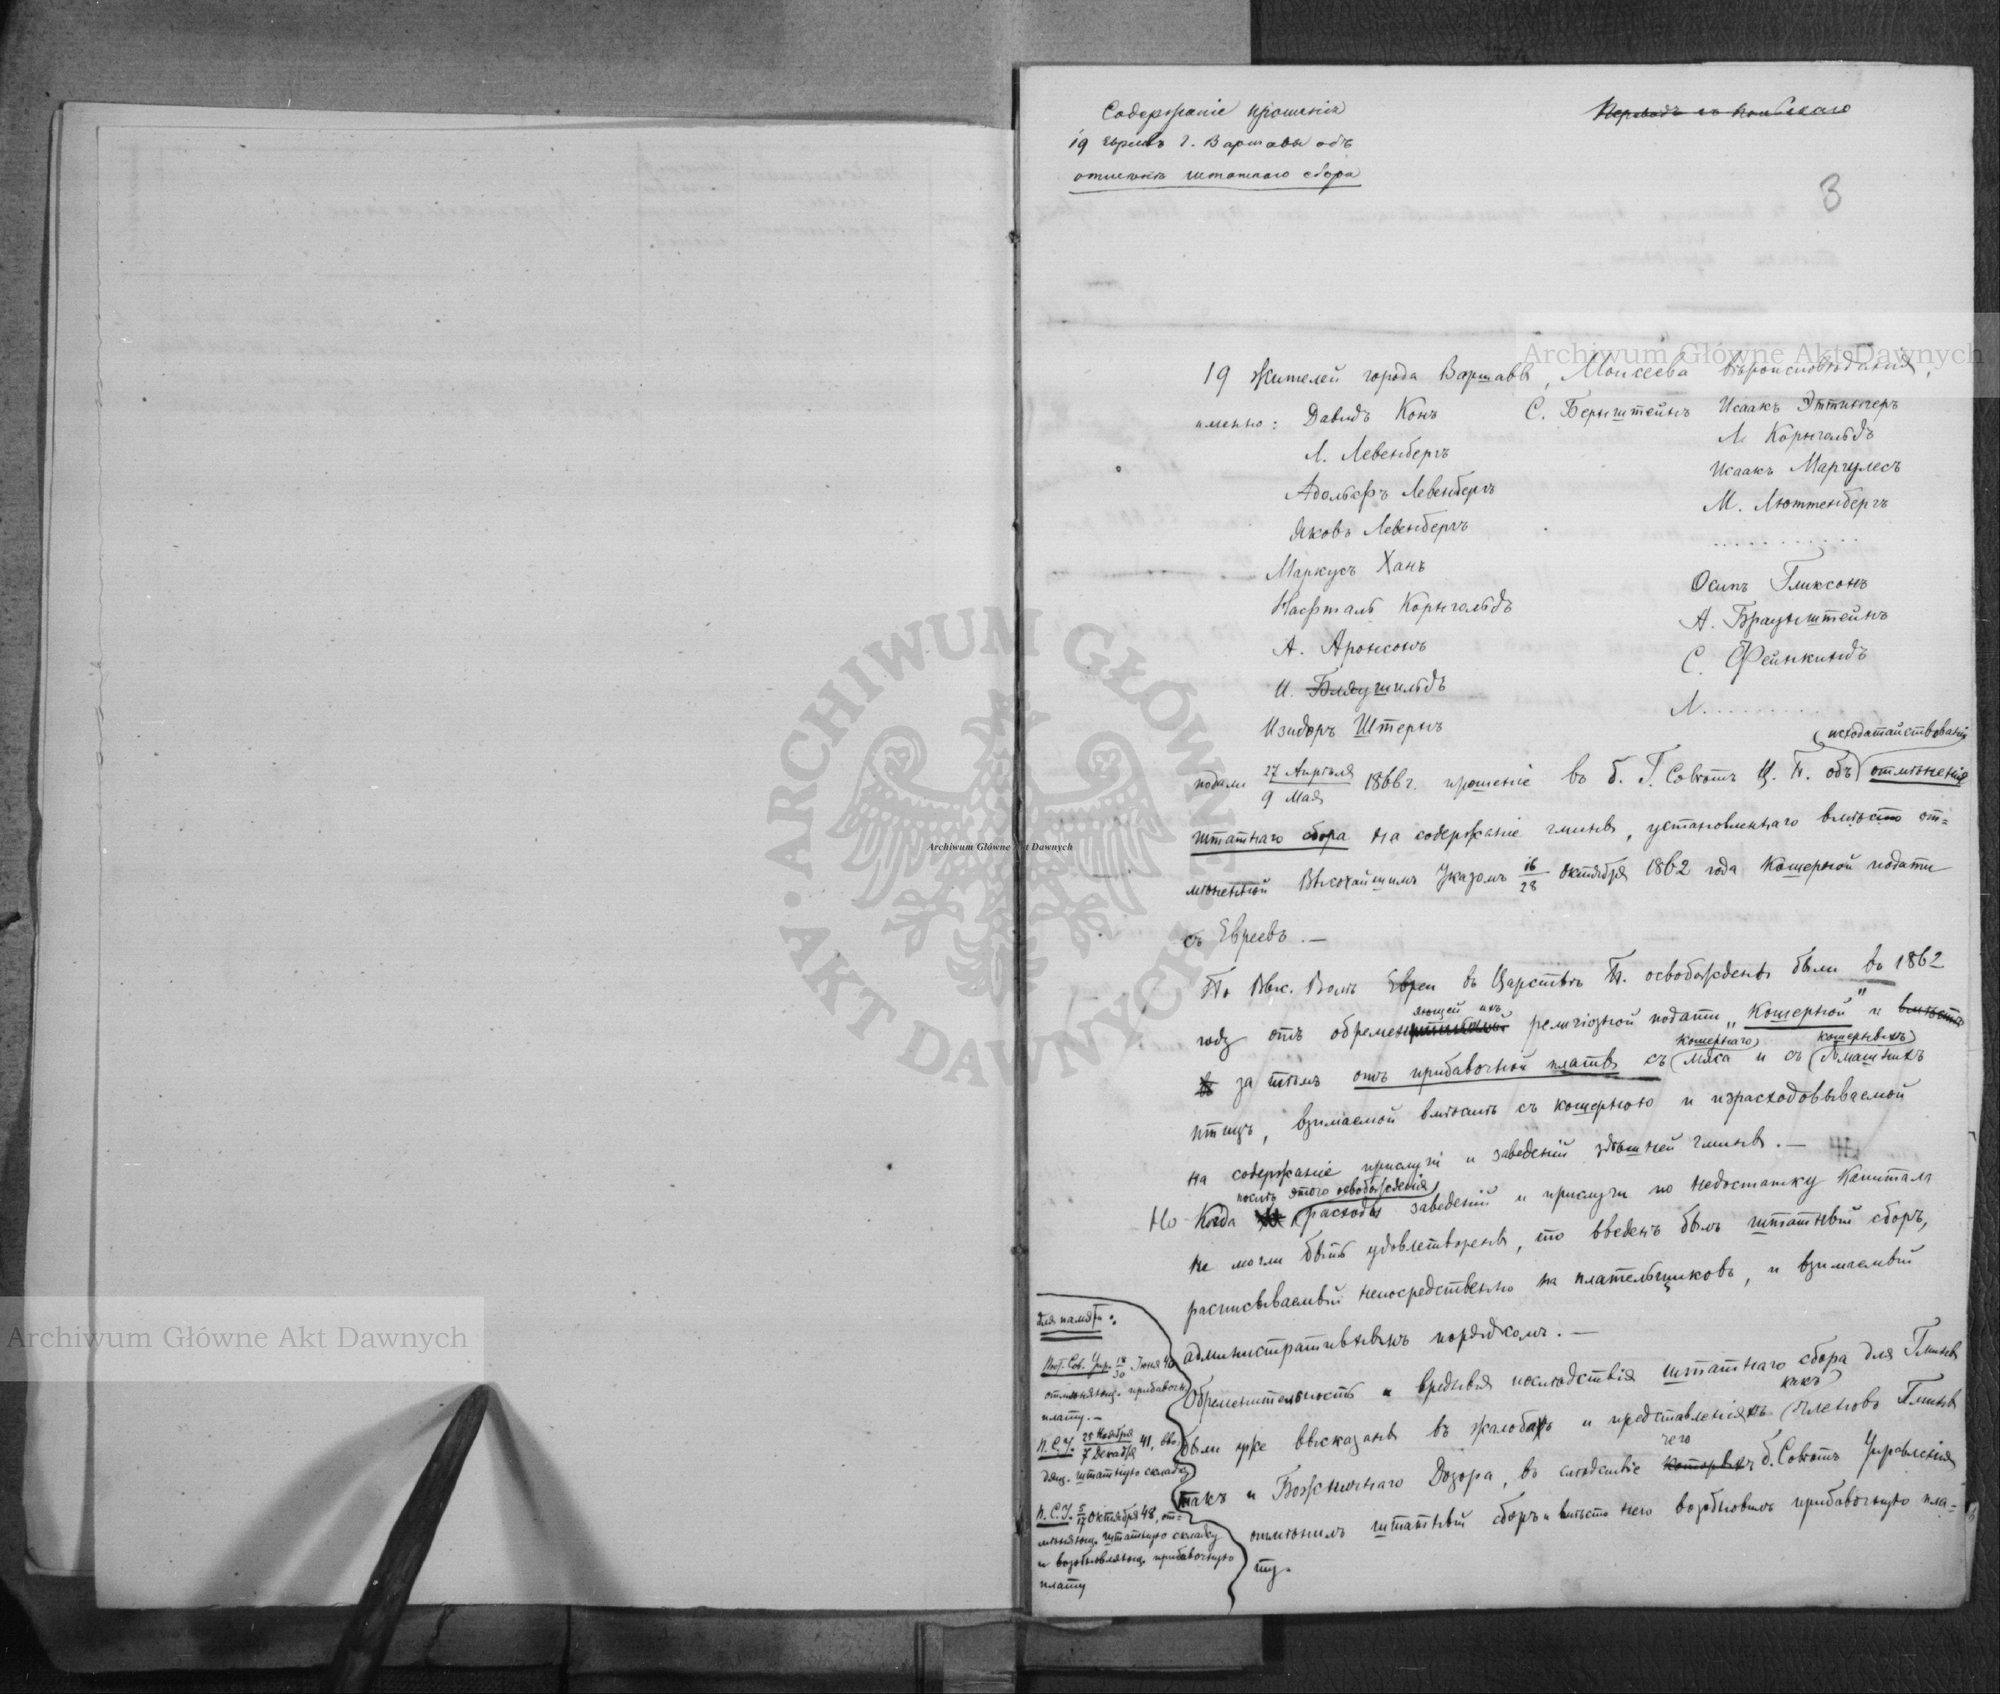 Содержаніе прошенія
19 евреевъ г. Варшавы объ
отмѣнѣ штатнаго сбора
Переводъ съ польскаго
3
19 жителей города Варшавы, Моисеева вѣроисповѣданія,
именно: Давидъ Конъ С. Бернштейнъ Исаакъ Эттингеръ
Л. Левенбергъ М Корнгольдъ
Адольфъ Левенбергъ Исаакъ Маргулесъ
Яковъ Левенбергъ М. Люттенбергъ
Маркусъ Ханъ . . . . . . . . . . .
Нафталь Корнгольдъ Осипъ Гликсонъ
А. Аронсонъ А. Браунштейнъ
И. Бляушильдъ С. Фейнкиндъ
Изидоръ Штернъ N. . . . . . . . . .
исходатайствованіи
подали 27 Апрѣля / 9 Мая 1866 г. прошеніе въ б. Г Совѣтъ Ц. П. объ отмѣненія
штатнаго сбора на содержаніе гмины, установленнаго вмѣсто от=
мѣненной Высочайшимъ Указомъ 16/28 Октября 1862 года Кошерной подати
съ Евреевъ. —
По Выс. Волѣ Евреи въ Царствѣ П. освобождены были въ 1862
яющей ихъ
году отъ обремен религіозной подати „Кошерной" и вмѣстѣ
кошернаго кошерныхъ
въ за тѣмъ отъ прибавочной платы съ мяса и съ домашнихъ
птицъ, взимаемой вмѣстѣ съ кошерною и израсходовываемой
на содержаніе прислуги и заведеній здѣшней гмины. —
послѣ этого освобожденія
Но Когда расходы заведеній и прислуги по недостатку Капитала
не могли быть удовлетворены, то введенъ былъ штатный сборъ,
расписываемый непосредственно на плательщиковъ, и взимаемый
административнымъ порядкомъ. —
Обременительность и вредныя послѣдствія штатнаго сбора для Гмины
какъ
были уже высказаны въ жалобахъ и представленіяхъ Членовъ Гмины
чего
такъ и Божничнаго Дозора, въ слѣдствіе которыхъ б. Совѣтъ Управленія
отмѣнилъ штатный сборъ и вмѣсто него возобновилъ прибавочную пла=
ту.
Для памяти:
Пост. Сов. Упр. 18/30 Іюня 40
отмѣняющ. прибавочн.
плату. —
П. С. У. 25 Ноября / 7 Декабря 41, вво
дящ. штатную складку
П. С. У. 5/17 Октября 48, от=
мѣняющ. штатную складку
и возобновляющ. прибавочную
плату
Archiwum Główne Akt Dawnych
Archiwum Główne Akt Dawnych
Archiwum Główne Akt Dawnych
ARCHIWUM GŁÓWNE AKT DAWNYCH